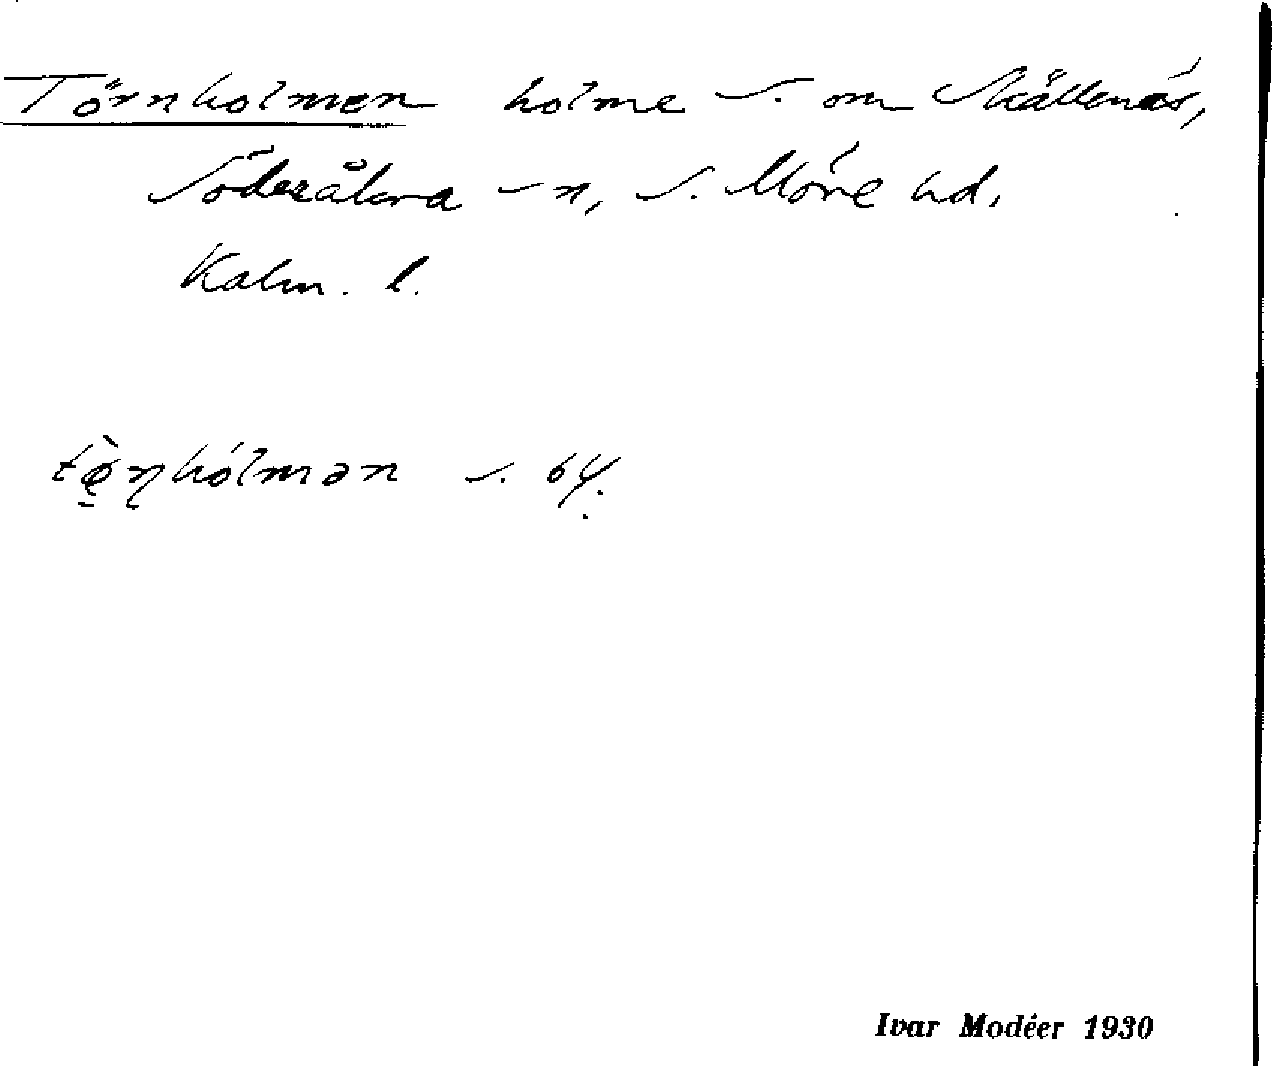 Törnholmen holme S. om Skällenäs,
Söderåkra sn, S. Möre hd.
Kalm. l.
tø̠̀ɳhólmən s. 64.
Ivar Modéer 1930